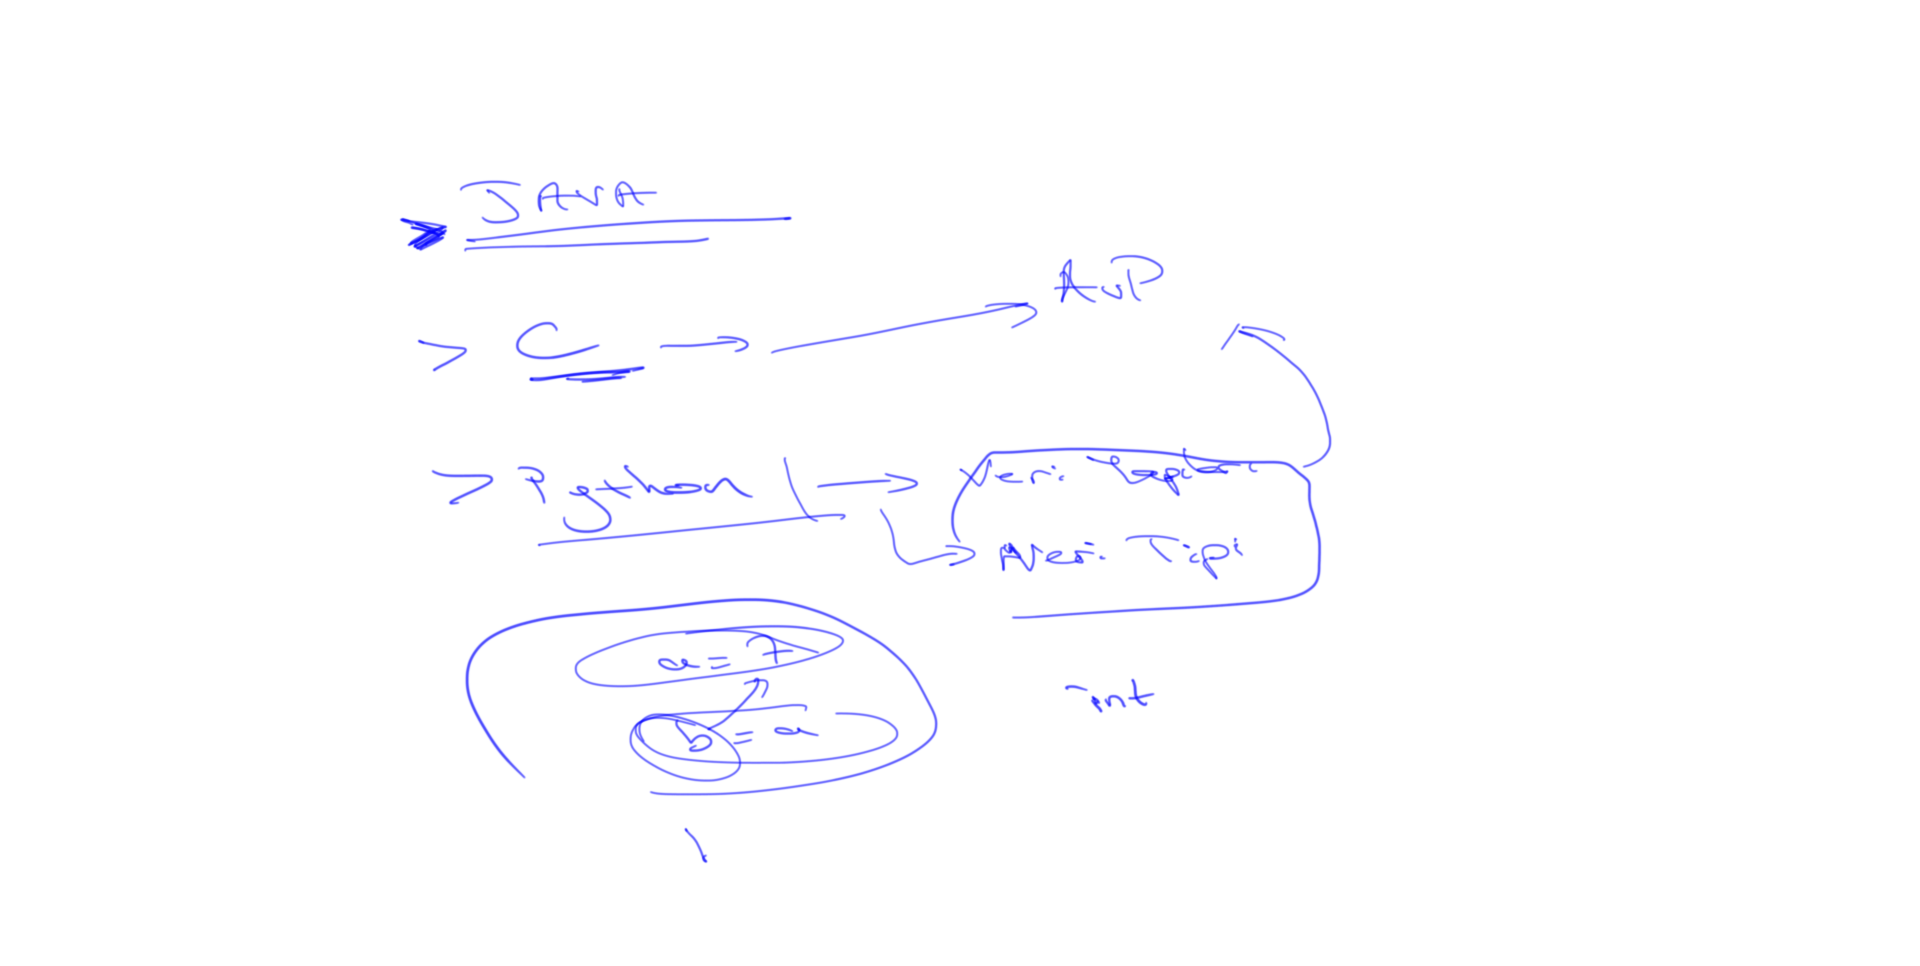 > JAVA
> C → → AVP
> Python → Veri Yapıları
→ Veri Tipi
a = 7
b = a
int